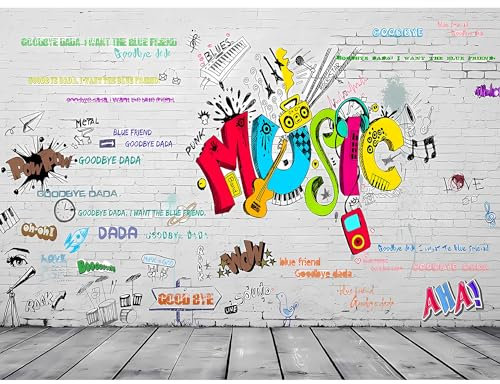 blue friend
Goodbye dada
GOODBYE
GOODBYE DADA. I WANT THE BLUE FRIEND
Goodbye dada
BLUES
GOODBYE DADA! I WANT THE BLUE FRIEND.
GOODBYE DADA, I WANT THE BLUE FRIEND
GOODBYE DADA, I WANT THE BLUE FRIEND
MUSIC
Metal
BLUE FRIEND
PUNK
GOODBYE DADA
POW POW
GOODBYE DADA
LOVE
GOODBYE DADA
GOODBYE DADA, I WANT THE BLUE FRIEND.
OH-OH!
DADA
GOODBYE DADA
LOVE
WOW
blue friend
Goodbye dada
Goodbye dada I want The Blue Friend
GOODBYE DADA
ROCK
GOOD BYE
LIVE
blue friend
Goodbye dada
AHA!